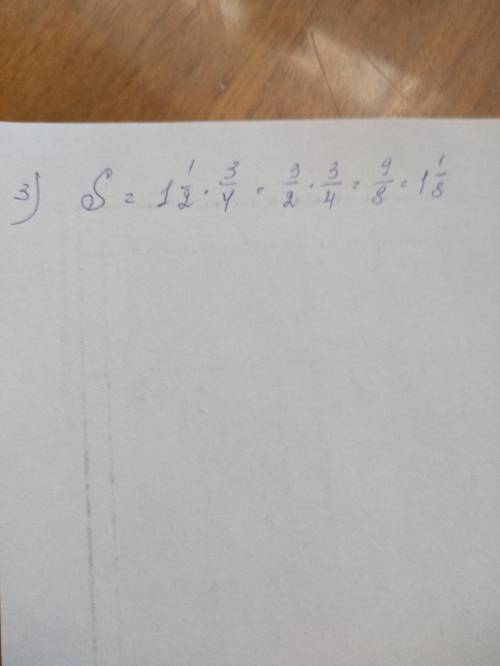 3) S = 1 1/2 · 3/4 = 3/2 · 3/4 = 9/8 = 1 1/8